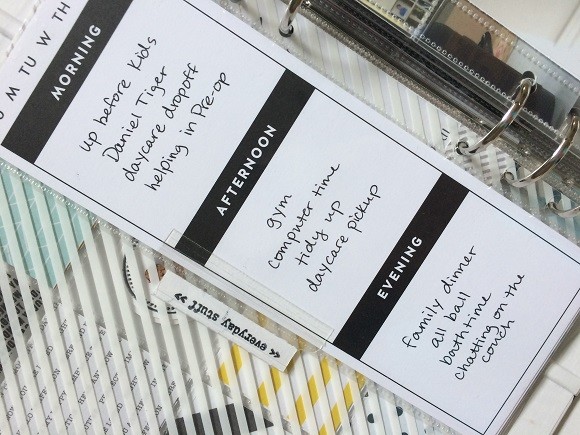 M TU W TH
MORNING
up before kids
Daniel Tiger
daycare dropoff
helping in Pre-op
AFTERNOON
gym
computer time
tidy up
daycare pickup
EVENING
family dinner
all ball
bathtime
chatting on the
couch
<< everyday stuff >>